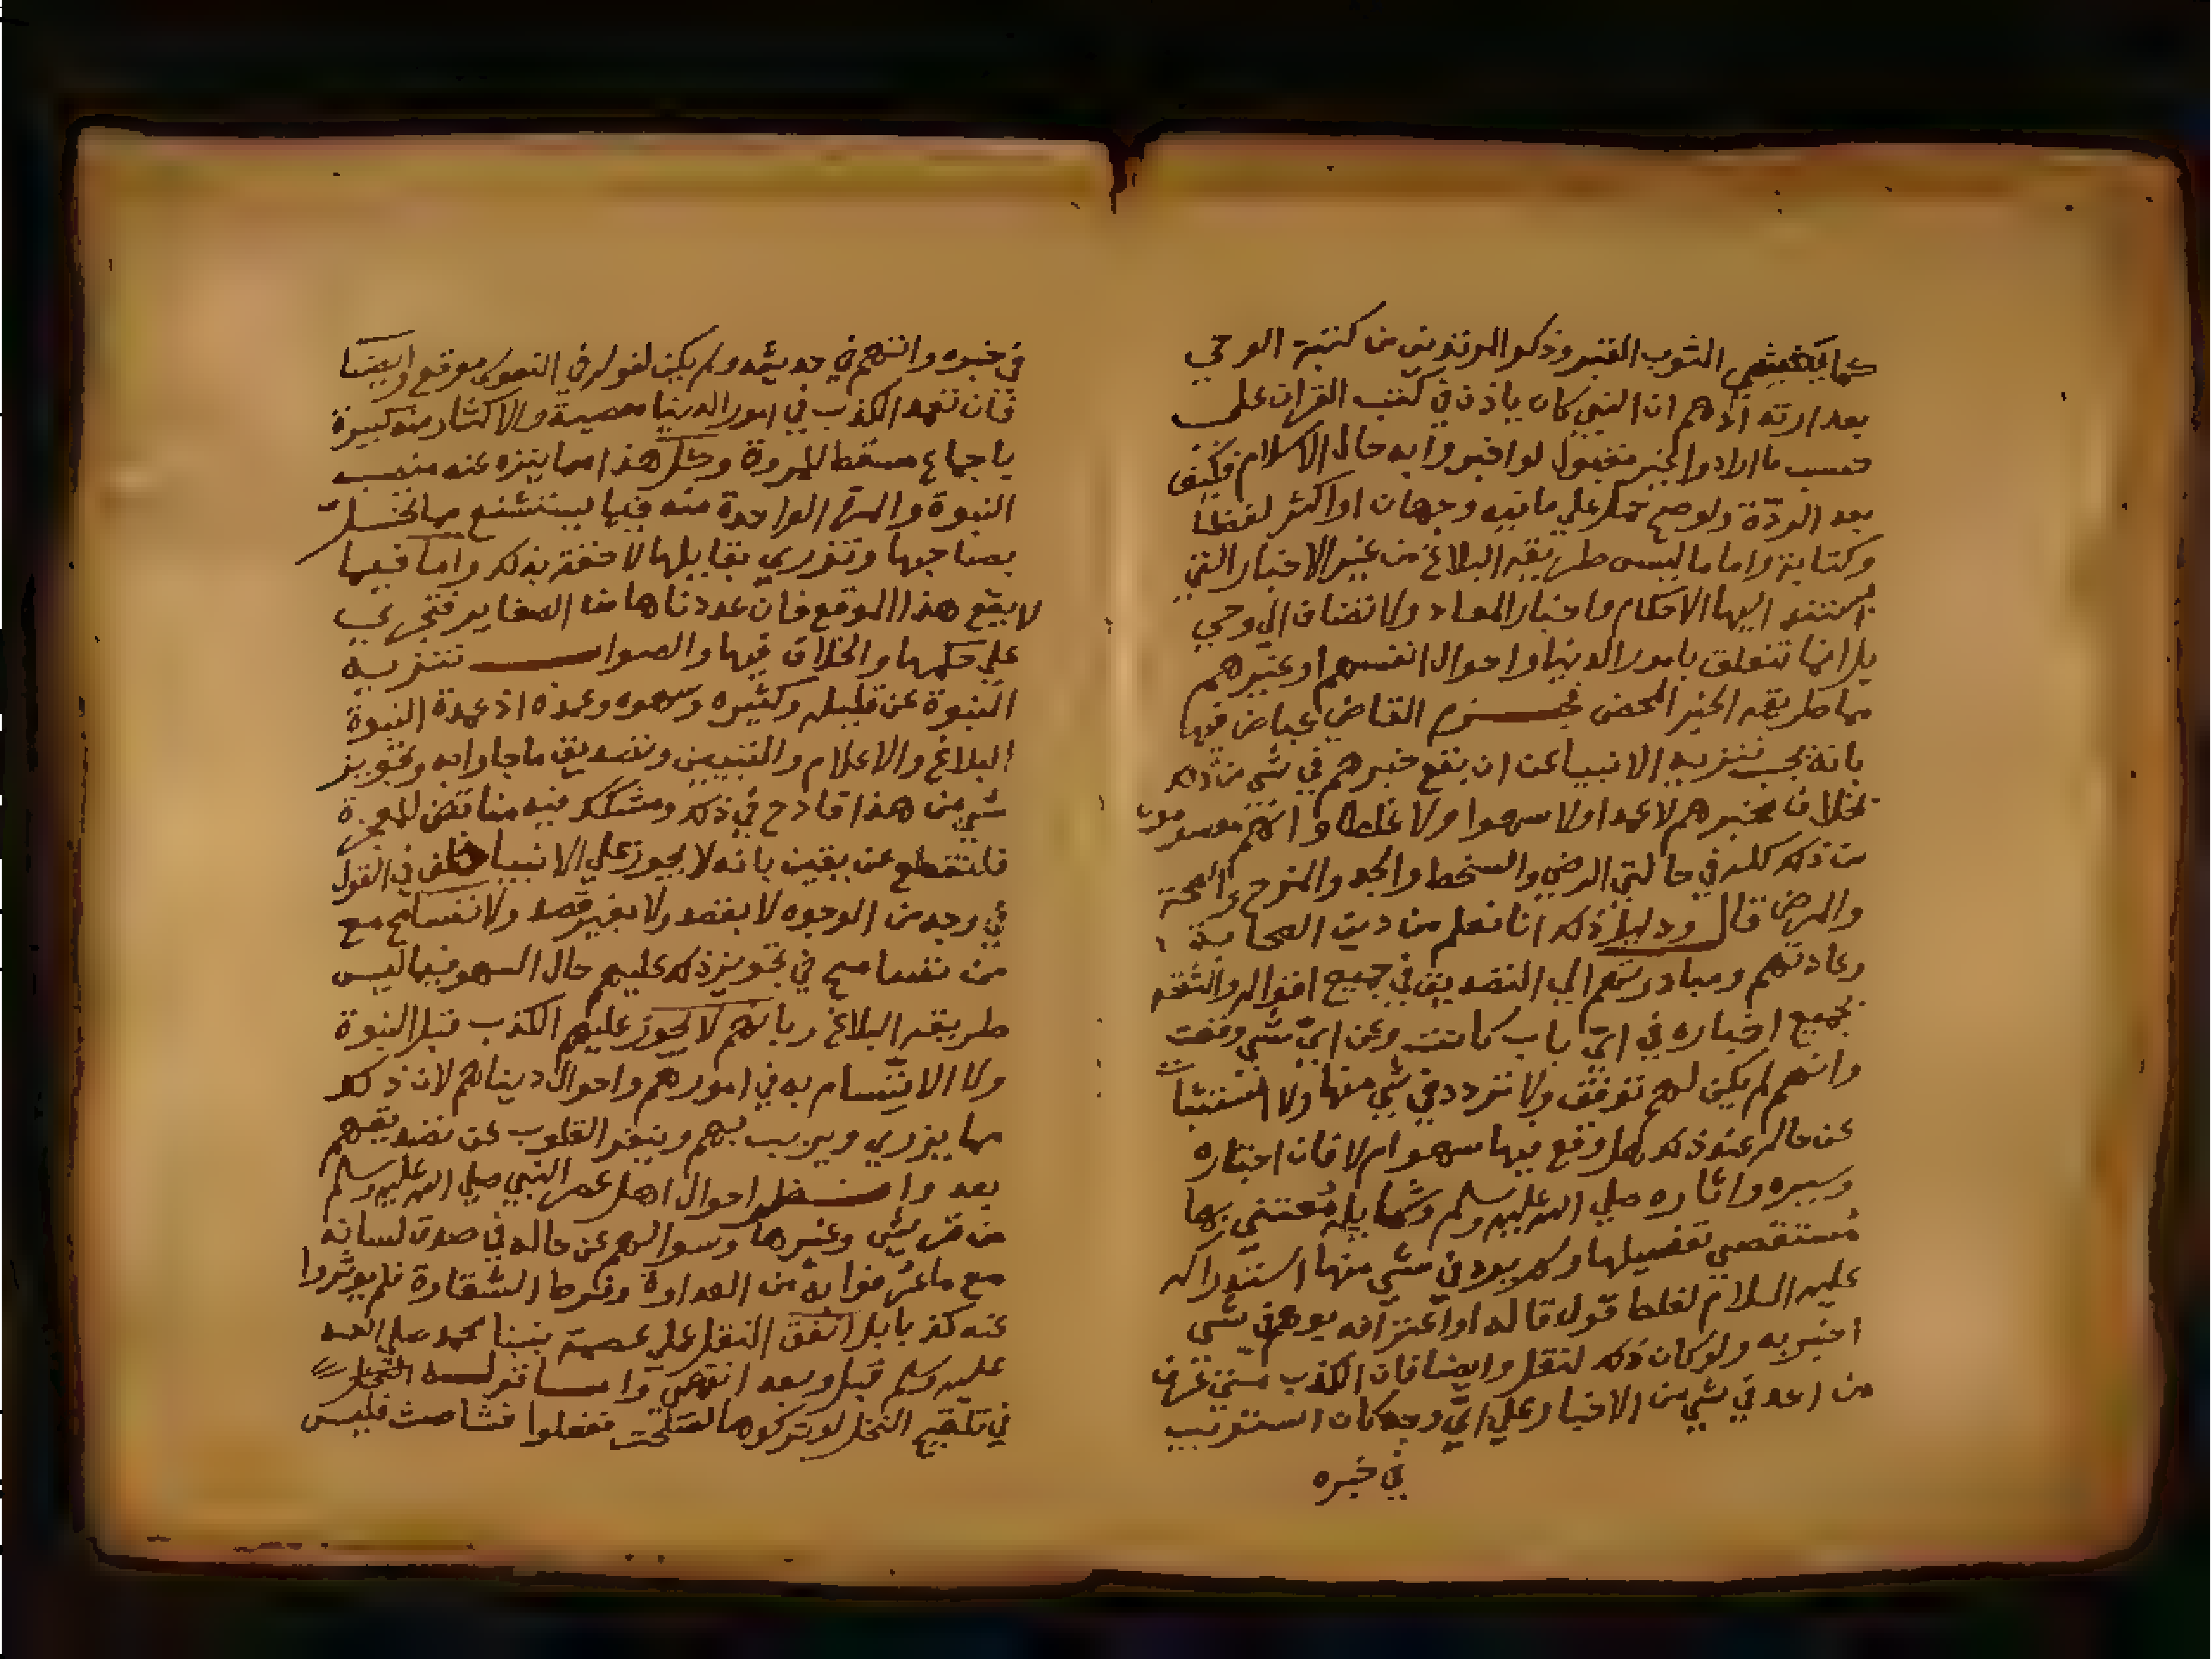 كما يغشي الثوب القبر وذكر المرتدين من كتبة الوحي
بعد ارتدادهم ان النبي كان ياذن في كتب القران على
حسب ما ارادوا لخبر مقبول لو اخبروا به حال الاسلام فكيف
بعد الردة ولو صح حمل علي ما فيه وجهان او اكثر لفظا
وكتابة واما ما ليس طريقه البلاغ من غير الاخبار التي
تستند اليها الاحكام واخبار المعاد ولا تضاف الي وحي
بل انما تتعلق بامور الدنيا واحوال انفسهم او غيرهم
مما طريقه الخبر المحض فجزم القاضي عياض فيها
بانه يجب تنزيه الانبيا عن ان يقع خبرهم في شي من ذلك
بخلاف مخبرهم لا عمدا ولا سهوا ولا غلطا وانهم معصومون
من ذلك كله في حالتي الرضي والسخط والجد والمزح والصحة
والمرض قال ودليل ذلك انا نعلم من دين الصحابة
وعادتهم ومبادرتهم الي التصديق في جميع اقواله والثقة
بجميع اخباره في اي باب كانت وعن اي شي وقعت
وانهم لم يكن لهم توقف ولا تردد في شي منها ولا استثبات
عن حاله عند ذلك هل وقع فيها سهو ام لا فان اخباره
وسيره واثاره صلي الله عليه وسلم وشمايله مُعتني بها
مُستقصي تفصيلها ولم يرد في شي منها استدراكه
عليه السلام لغلط في قول قاله او اعترافه بوهم في شي
اخبر به ولو كان ذلك لنقل وايضا فان الكذب متي عُرف
من احد في شي من الاخبار علي اي وجه كان استريب
في خبره
في خبره واتهم في حديثه ولم يكن لقوله في النفوس موقع وايضا
فان تعمد الكذب في امور الدنيا معصية والاكثار منه كبيرة
باجماع مسقط للمروة وكل هذا مما ينزه عنه منصب
النبوة والمرة الواحدة منه فيما يستشنع مما تخل
بصاحبها وتزري بقايلها لاحقة بذلك واما فيما
لا يقع هذا الموقع فان عددناها من الصغاير فتجري
علي حكمها والخلاف فيها والصواب تنزيه
النبوة عن قليله وكثيره وسهوه وعمده اذ عمدة النبوة
البلاغ والاعلام والتبيين وتصديق ما جاوا به وتجويز
شي من هذا قادح في ذلك ومشكك فيه مناقض للمعجزة
فلنقطع عن يقين بانه لا يجوز علي الانبيا خلف في القول
في وجه من الوجوه لا بقصد ولا بغير قصد ولا نتسامح مع
من تسامح في تجويز ذلك عليهم حال السهو فيما ليس
طريقه البلاغ وبانهم لا يجوز عليهم الكذب قبل النبوة
ولا الاتسام به في امورهم واحوال دنياهم لان ذلك
مما يزري ويريب بهم وينفر القلوب عن تصديقهم
بعد وانظر احوال اهل عصر النبي صلي الله عليه وسلم
من قريش وغيرها وسوالهم عن حاله في صدق لسانه
مع ما عُرفوا به من العداوة وفرط الشقاوة فلم يوثروا
عنه كذبا بل اتفق النقل علي عصمة نبينا محمد صلي الله
عليه وسلم قبل وبعد انتهي واما قوله
في تلقيح النخل لو تركوها لصلحت ففعلوا فشاصت فليس